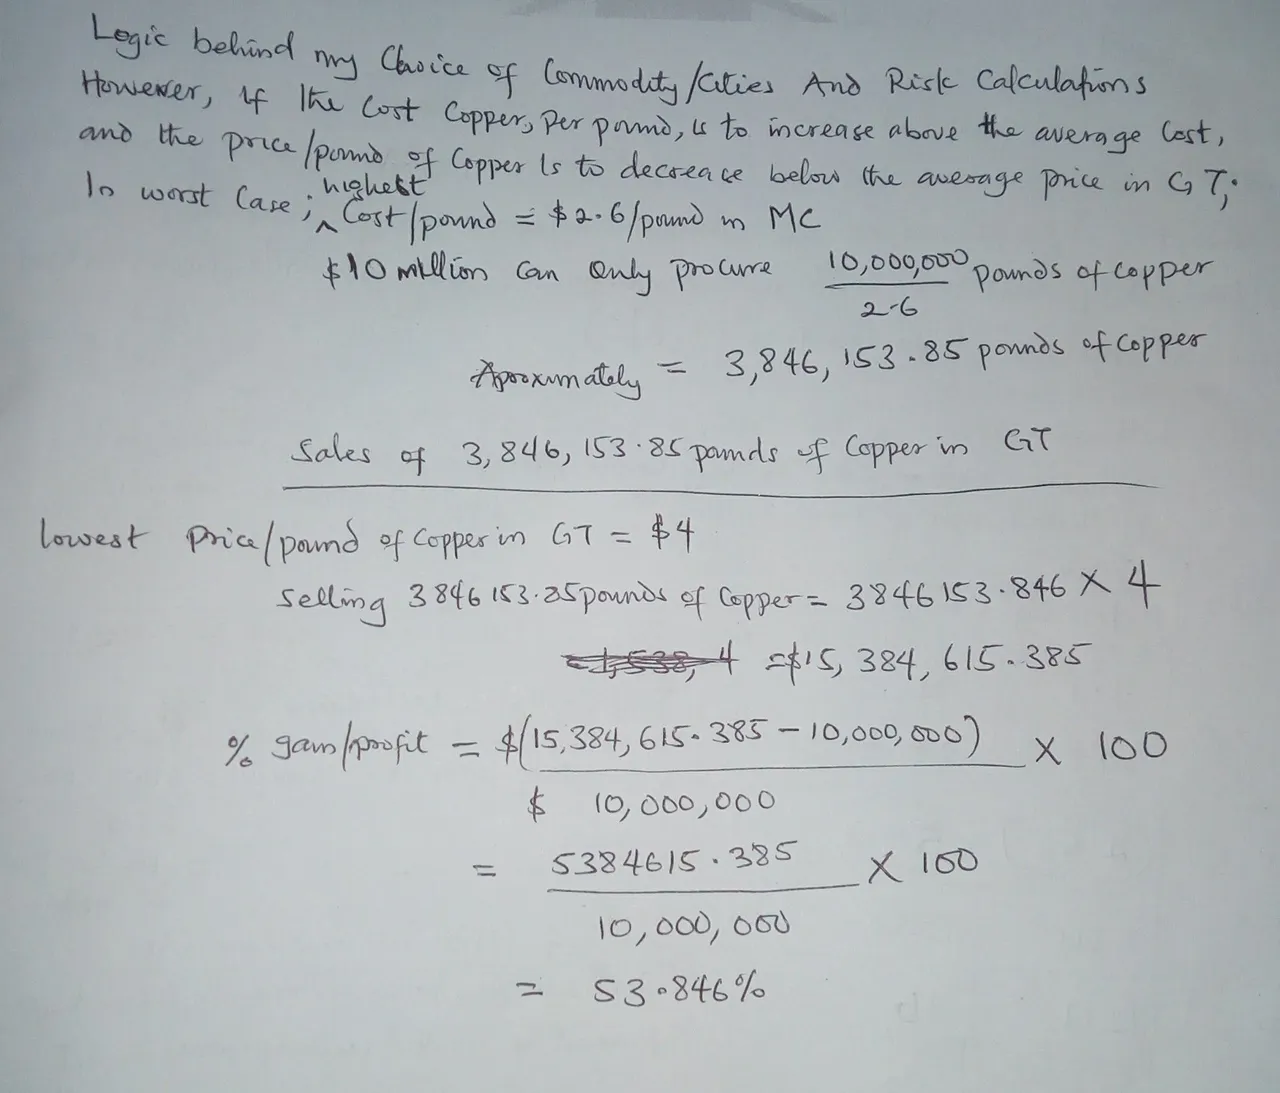 Logic behind my Choice of Commodity/Cities And Risk Calculations
However, if the Cost Copper, Per pound, is to increase above the average Cost,
and the price/pound of Copper Is to decrease below the average price in GT;
In worst Case; ^ highest Cost/pound = $2.6/pound in MC
$10 million can only procure 10,000,000 / 2.6 pounds of copper
Aproximately = 3,846,153.85 pounds of copper
Sales of 3,846,153.85 pounds of Copper in GT
lowest Price/pound of copper in GT = $4
Selling 3846153.85pounds of Copper = 3846153.846 X 4
= $15,384,615.385
% gain/profit = $(15,384,615.385 - 10,000,000) / $ 10,000,000 X 100
= 5384615.385 / 10,000,000 X 100
= 53.846%